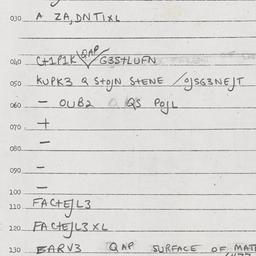 030 A ZA, DNT1XL
040 C+1P1K QAP G3S+LUFN
050 KUPK3 Q S+OJN S+ENE /OJSG3NEJT
060 - OUB2 QS POJL
070 +
080 -
090 -
100 -
110 FAC+EJL3
120 FAC+EJL3XL
130 EARV3 QAP SURFACE OF MAT